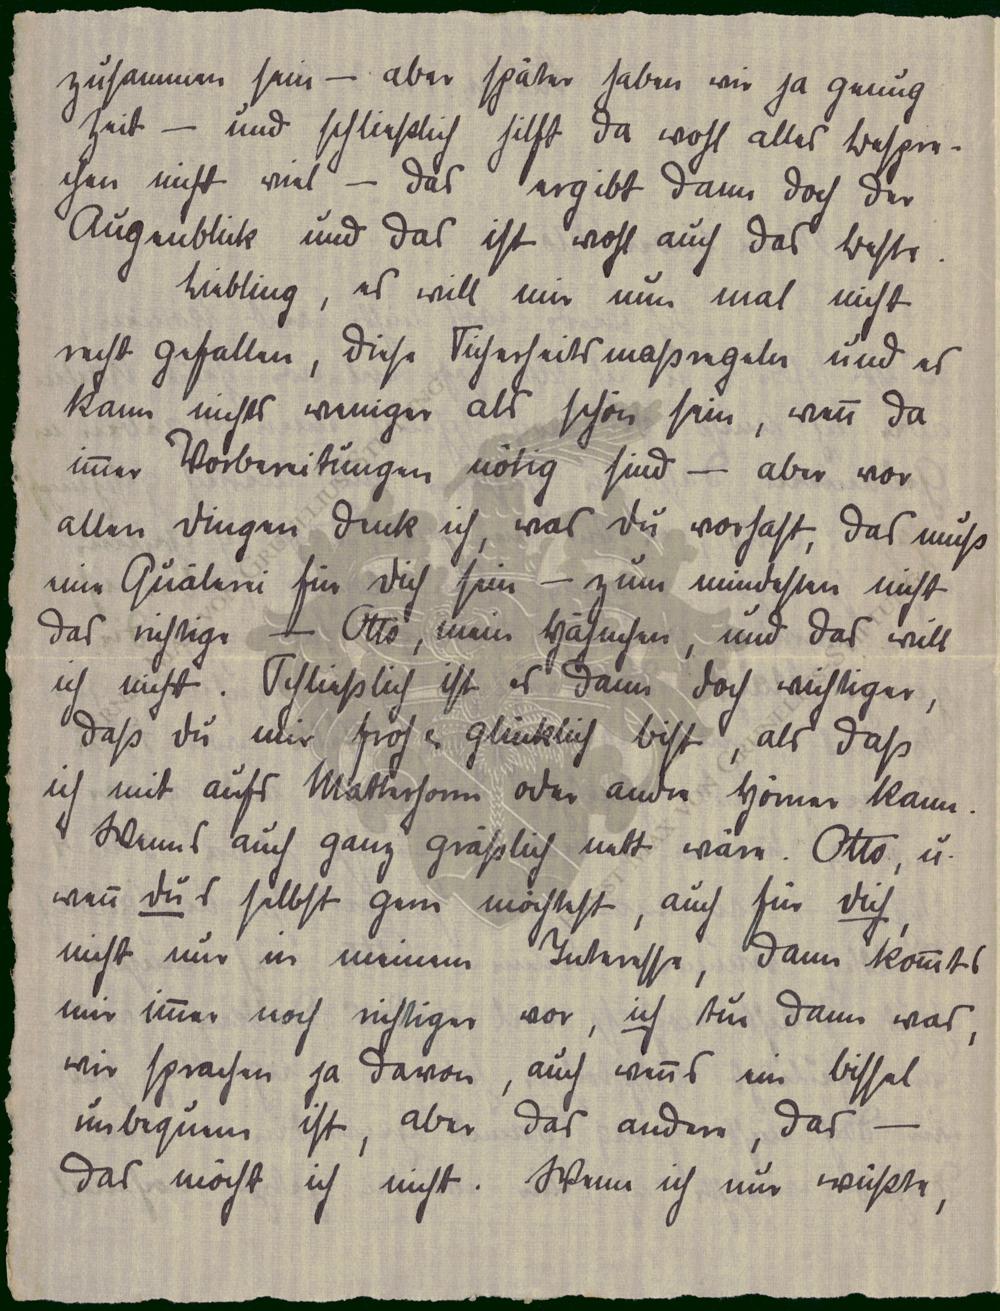 zusammen sein — aber später haben wir ja genug
Zeit — und schließlich hilft da wohl alles bespre-
chen nicht viel — das ergibt dann doch der
Augenblick und das ist wohl auch das beste.
Liebling, es will mir nun mal nicht
recht gefallen, diese Sicherheitsmaßregeln und es
kann nichts weniger als schön sein, weñ da
im̃er Vorbereitungen nötig sind — aber vor
allen Dingen denk ich, was du vorhast, das muß
eine Quälerei für dich sein — zum mindesten nicht
das richtige — Otto, mein Hähnchen, und das will
ich nicht. Schließlich ist es dann doch wichtiger,
daß du mir froh u glücklich bist, als daß
ich mit aufs Matterhorn oder andre Hörner kann.
Wenns auch ganz gräßlich nett wäre. Otto, u.
weñ dus selbst gern möchtest, auch für dich,
nicht nur in meinem Interesse, dann kom̃ts
mir im̃er noch richtiger vor, ich tue dann was,
wir sprachen ja davon, auch weñs ein bissel
unbequem ist, aber das andere, das —
das möcht ich nicht. Wenn ich nur wüßte,